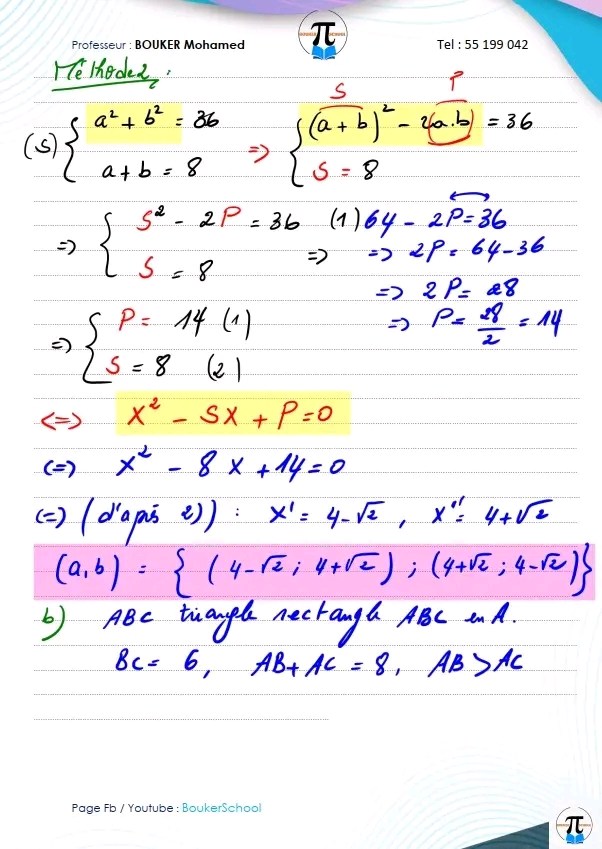 Professeur : BOUKER Mohamed
Tel : 55 199 042
Méthode 2 :
S P
(S) { a² + b² = 36 => { (a + b)² - 2(a.b) = 36
a + b = 8 S = 8
=> { S² - 2P = 36 (1) 64 - 2P = 36
S = 8 => => 2P = 64 - 36
=> 2P = 28
=> { P = 14 (1) => P = 28/2 = 14
S = 8 (2)
<=> X² - SX + P = 0
(=) X² - 8X + 14 = 0
(=) (d'après 2)) : X' = 4 - √2 , X'' = 4 + √2
(a,b) = { (4-√2 ; 4+√2) ; (4+√2 ; 4-√2)}
b) ABC triangle rectangle ABC en A.
BC = 6, AB + AC = 8, AB > AC
Page Fb / Youtube : BoukerSchool